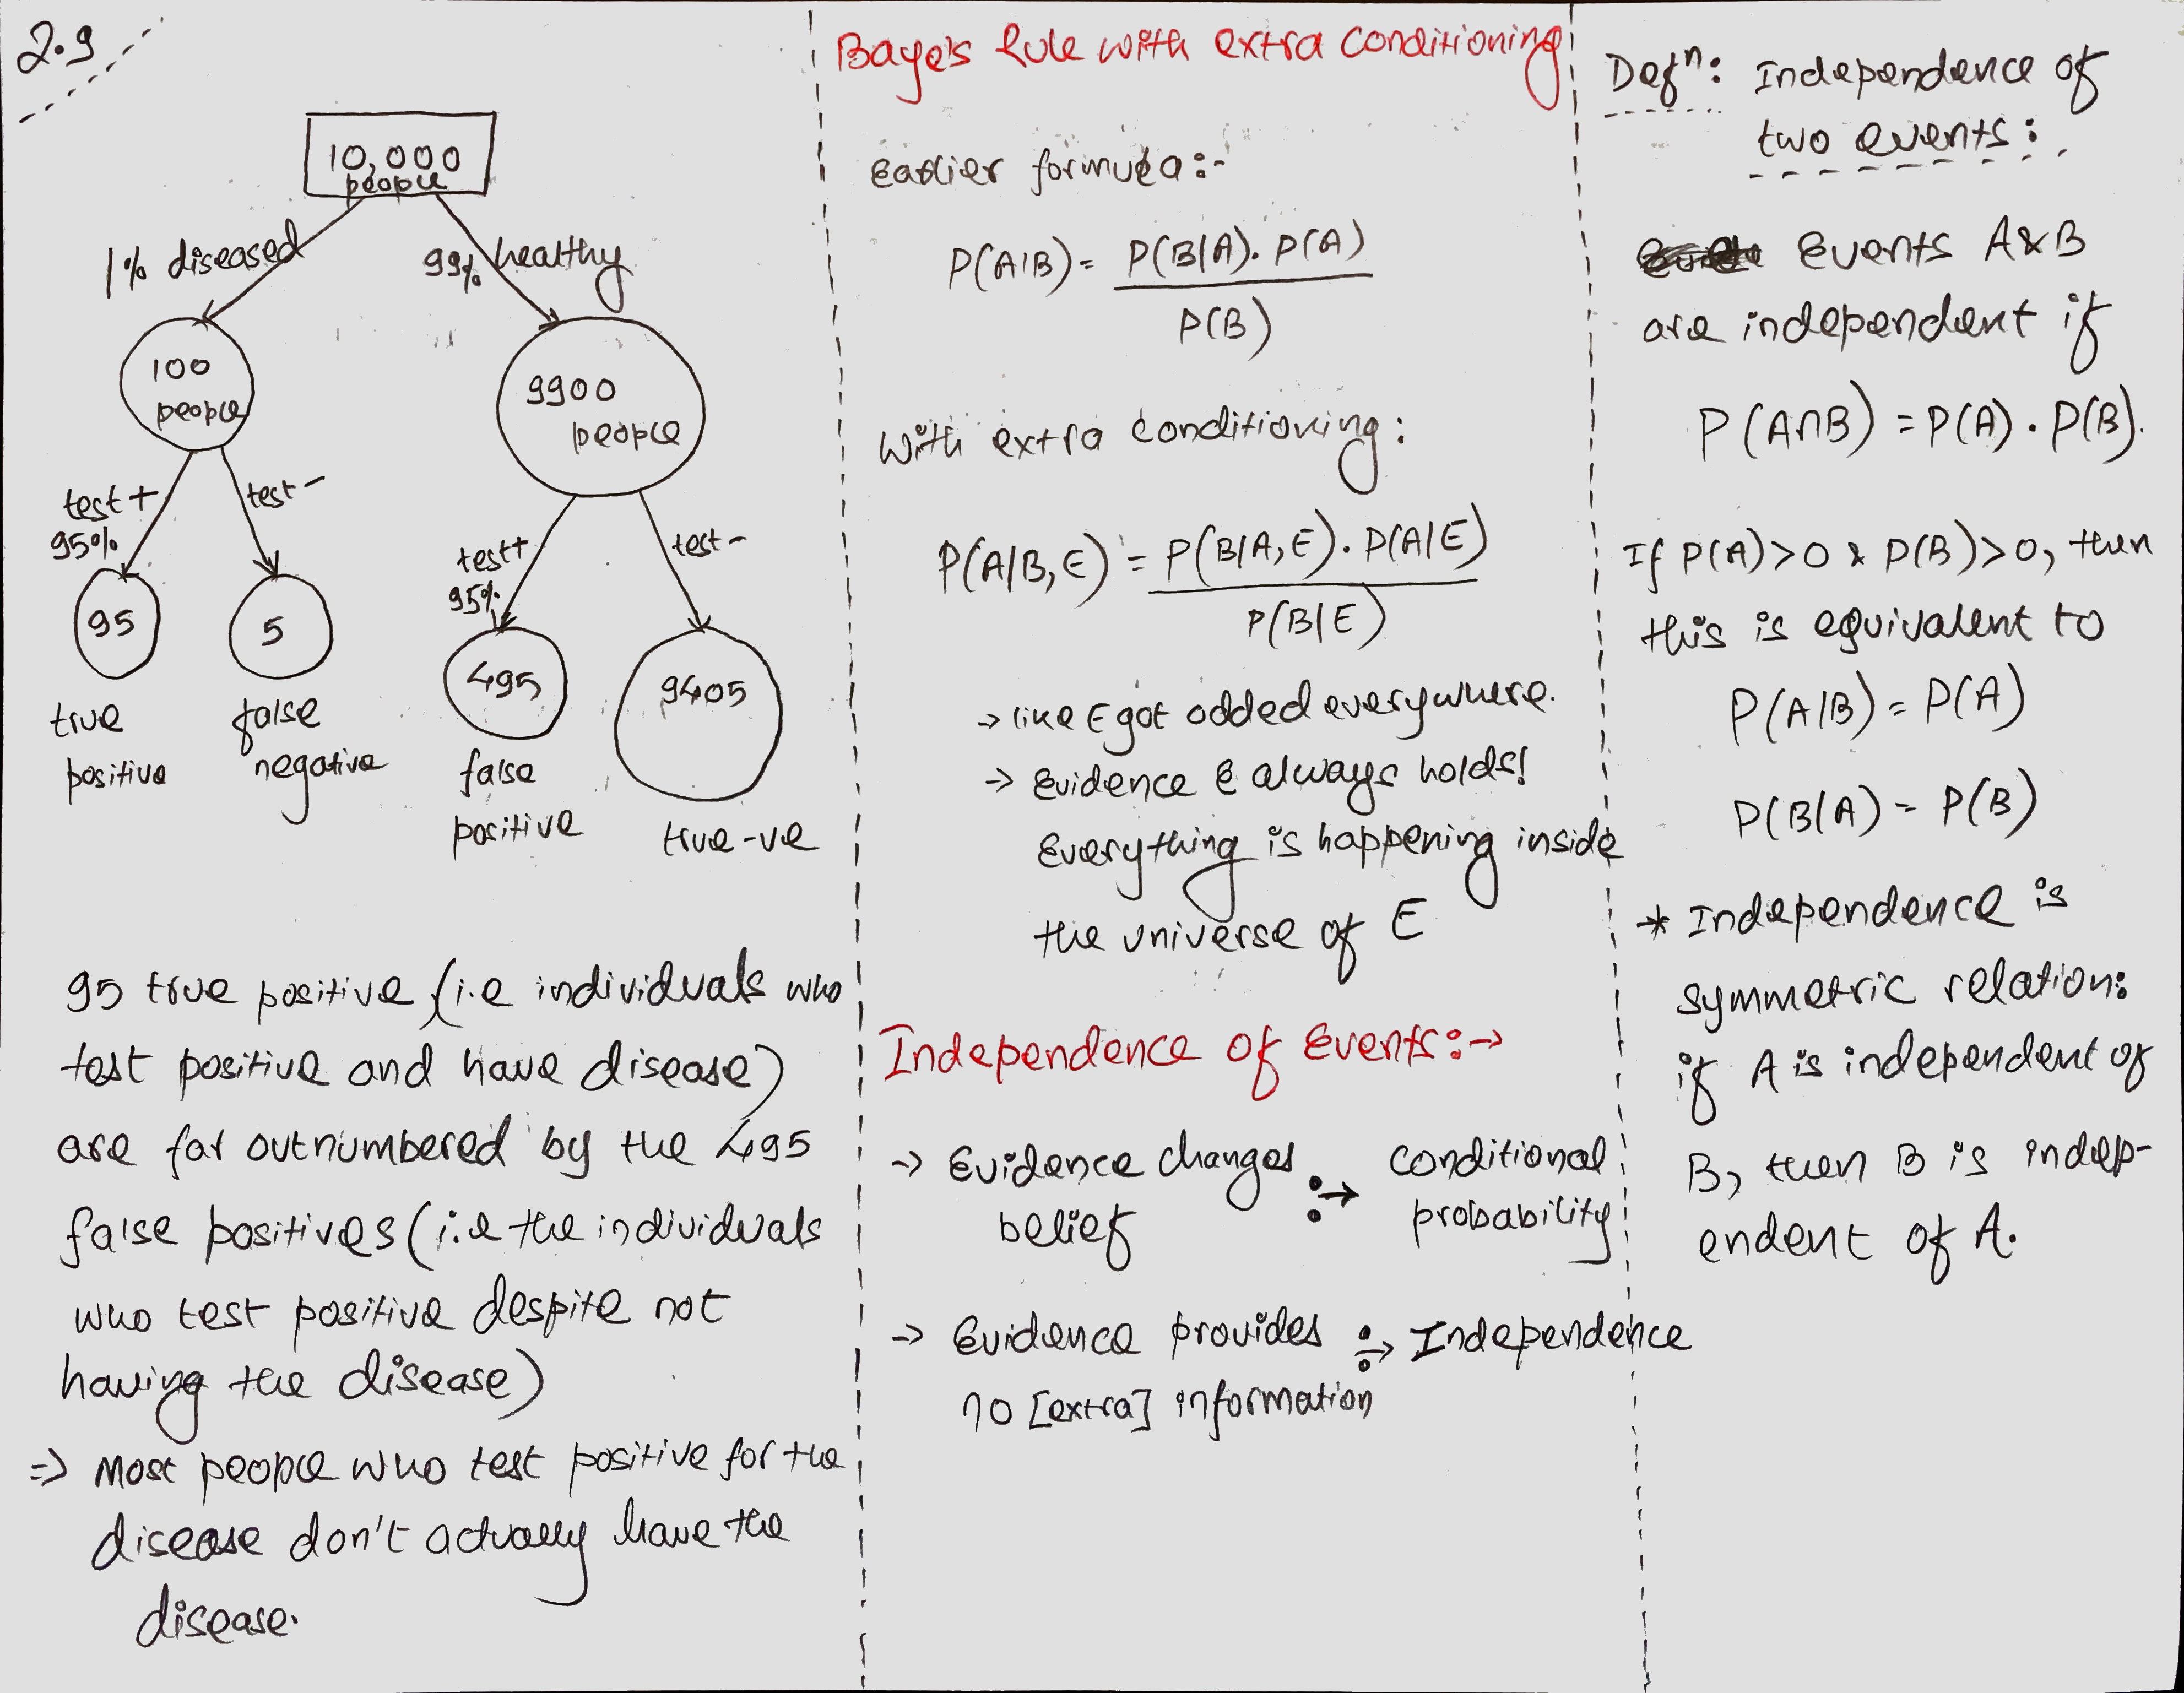 2.9
10,000
people
1% diseased
99% healthy
100
people
9900
people
test+
95%
test-
test+
95%
test-
95
5
495
9405
true
positive
false
negative
false
positive
true -ve
95 true positive (i.e individuals who
test positive and have disease)
are far outnumbered by the 495
false positives (i.e the individuals
who test positive despite not
having the disease)
=> Most people who test positive for the
disease don't actually have the
disease.
Baye's Rule with extra conditioning
Earlier formula:-
P(A|B) = P(B|A). P(A)
P(B)
With extra conditioning:
P(A|B,E) = P(B|A,E). P(A|E)
P(B|E)
-> like E got added everywhere.
-> Evidence E always holds!
Everything is happening inside
the universe of E
Independence of Events:->
-> Evidence changes :-> conditional
belief probability
-> Evidence provides :-> Independence
no [extra] information
Defⁿ: Independence of
two events:
Events A & B
are independent if
P(A∩B) = P(A) . P(B).
If P(A)>0 & P(B)>0, then
this is equivalent to
P(A|B) = P(A)
P(B|A) = P(B)
* Independence is
symmetric relation:
if A is independent of
B, then B is indep-
endent of A.